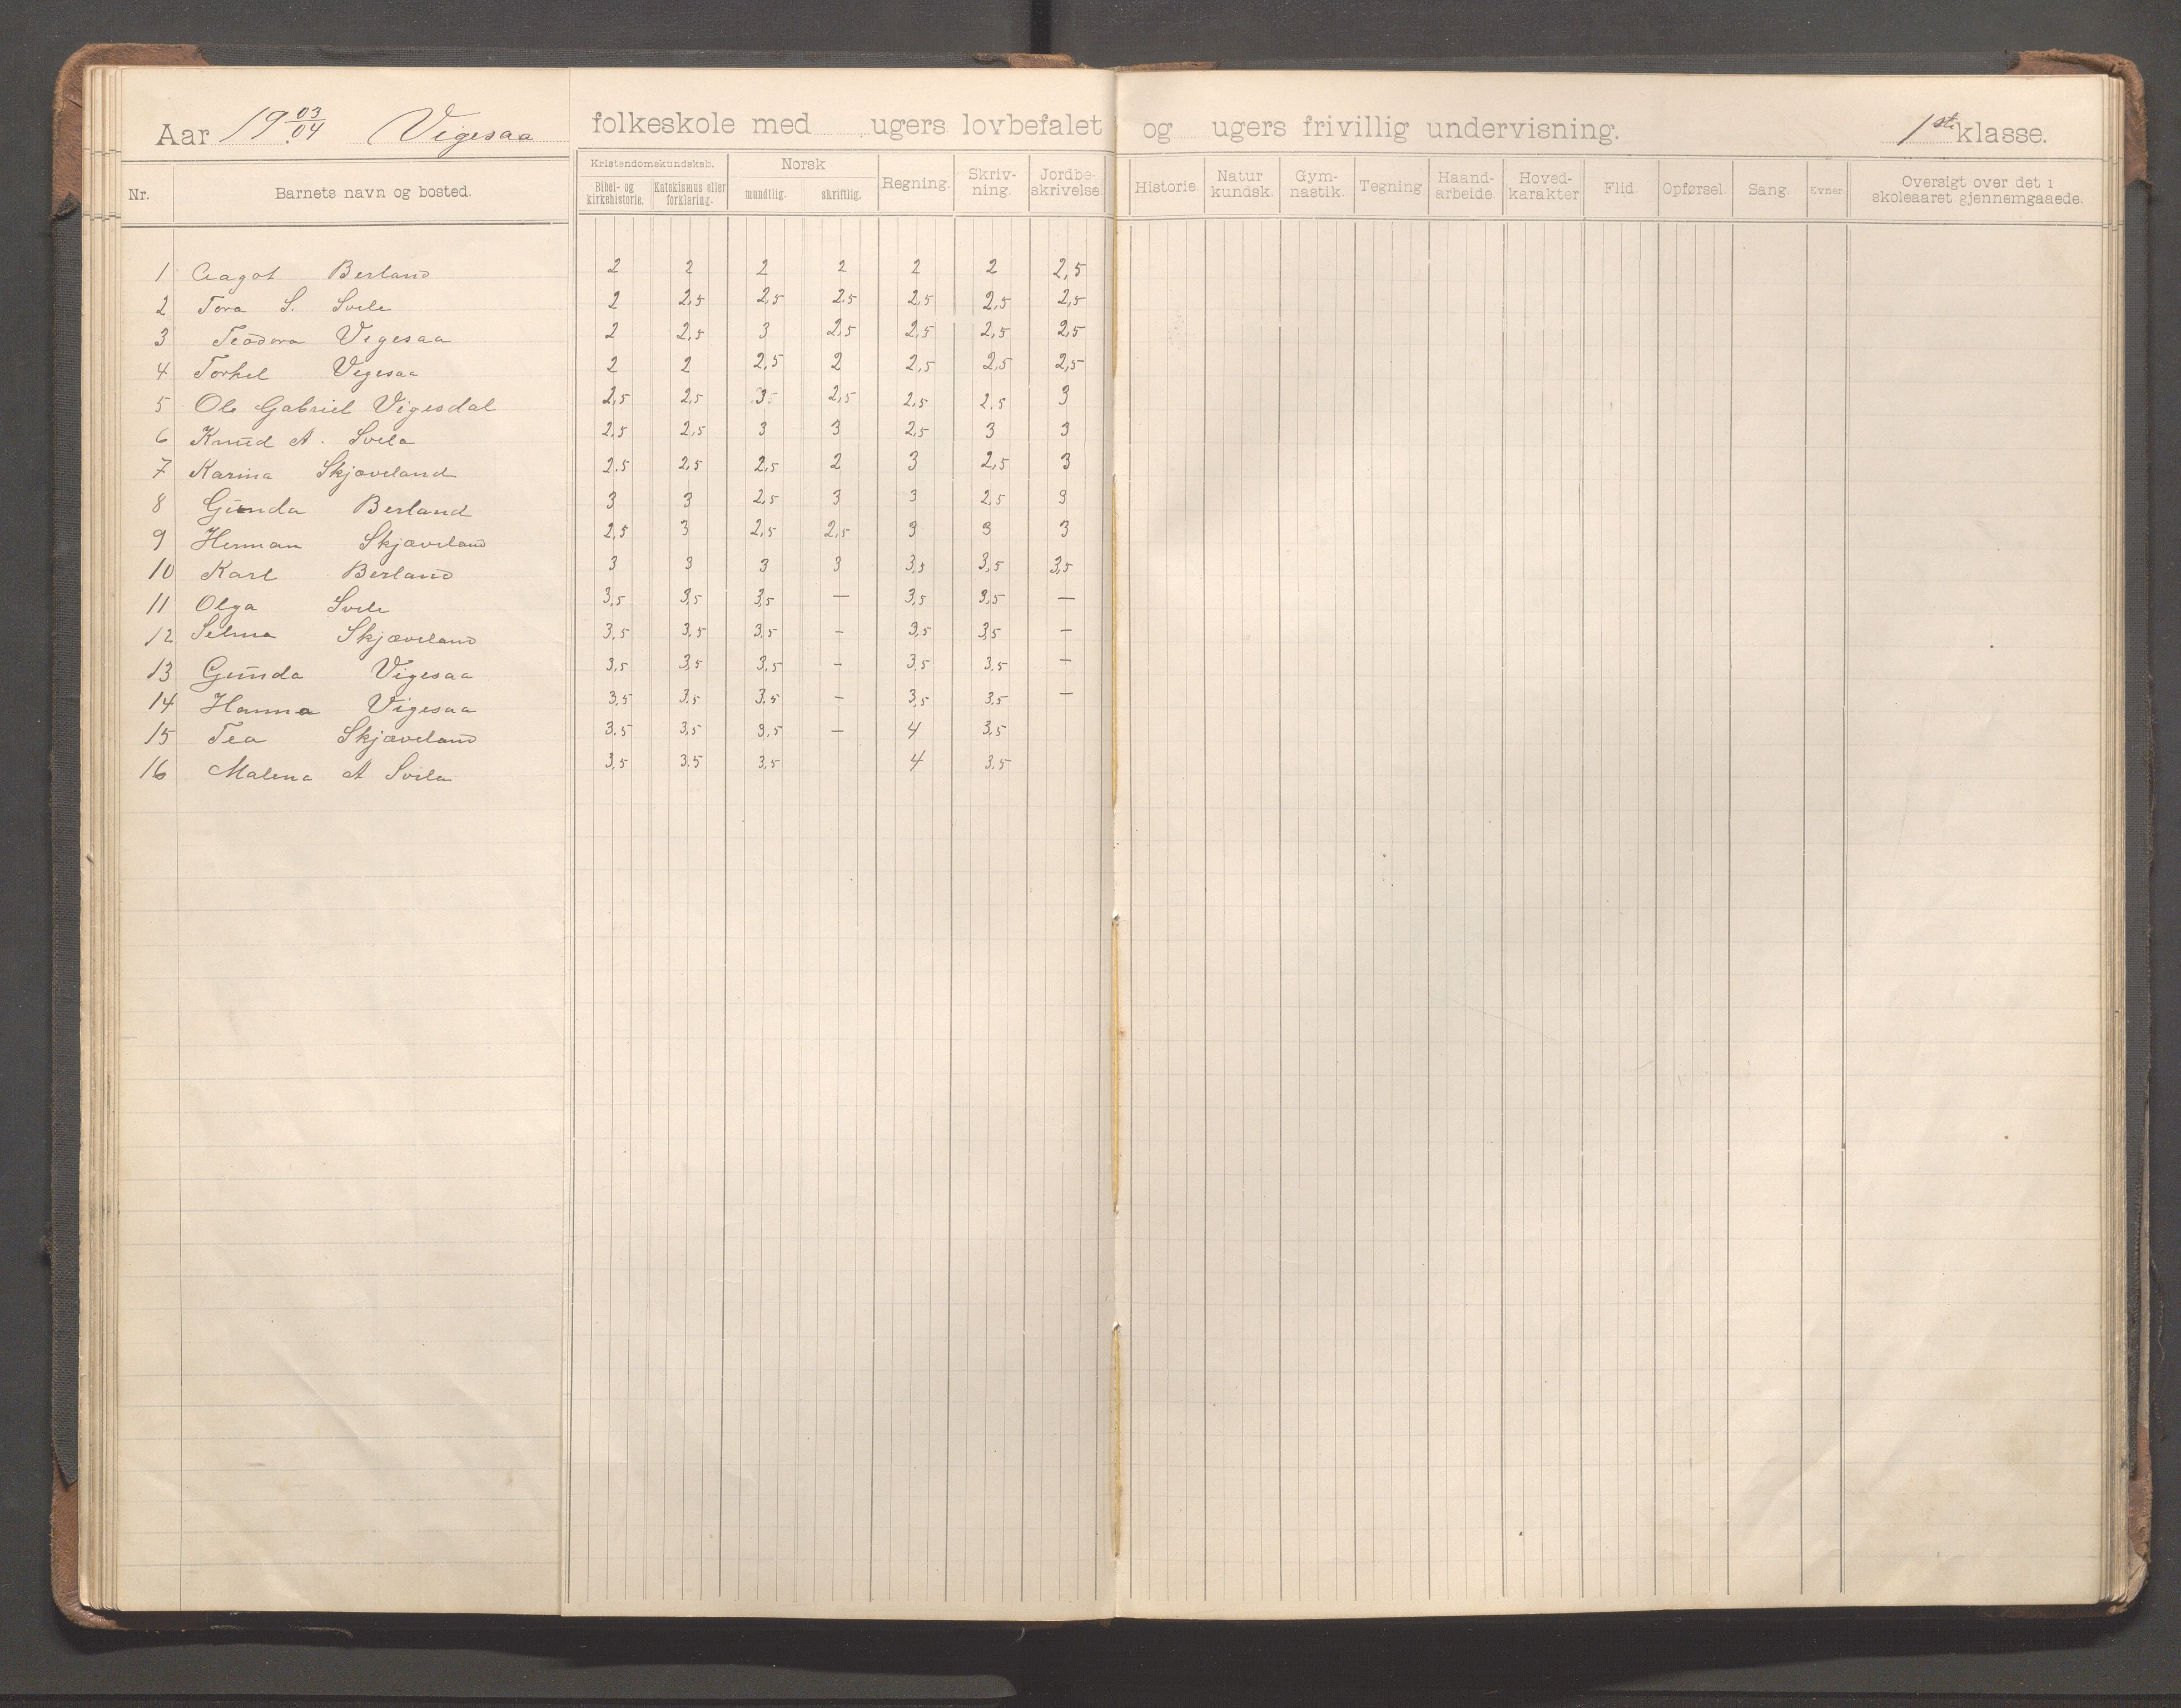 Aar 19 03/04 Vigesaa folkeskole med ugers lovbefalet og ugers frivillig undervisning. 1ste klasse.
Nr. Barnets navn og bosted. Kristendomskundskab. Bibel- og kirkehistorie. Katekismus eller forklaring. Norsk mundtlig. skriftlig. Regning. Skriv-ning. Jordbe-skrivelse. Historie. Natur kundsk. Gym-nastik. Tegning Haand-arbeide. Hoved-karakter Flid Opførsel. Sang. Evner Oversigt over det i skoleaaret gjennemgaaede.
1 Aagot Berland 2 2 2 2 2 2 2,5
2 Tora S. Svela 2 2,5 2,5 2,5 2,5 2,5 2,5
3 Teodora Vigesaa 2 2,5 3 2,5 2,5 2,5 2,5
4 Torkel Vigesaa 2 2 2,5 2 2,5 2,5 2,5
5 Ole Gabriel Vigesdal 2,5 2,5 3 2,5 2,5 2,5 3
6 Knud A. Svela 2,5 2,5 3 3 2,5 3 3
7 Karina Skjæveland 2,5 2,5 2,5 2 3 2,5 3
8 Gunda Berland 3 3 2,5 3 3 2,5 3
9 Herman Skjæveland 2,5 3 2,5 2,5 3 3 3
10 Karl Berland 3 3 3 3 3,5 3,5 3,5
11 Olga Svela 3,5 3,5 3,5 — 3,5 3,5 —
12 Selma Skjæveland 3,5 3,5 3,5 - 3,5 3,5 —
13 Gunda Vigesaa 3,5 3,5 3,5 - 3,5 3,5 —
14 Hanna Vigesaa 3,5 3,5 3,5 - 3,5 3,5 —
15 Tea Skjæveland 3,5 3,5 3,5 — 4 3,5
16 Malena A Svela 3,5 3,5 3,5 4 3,5